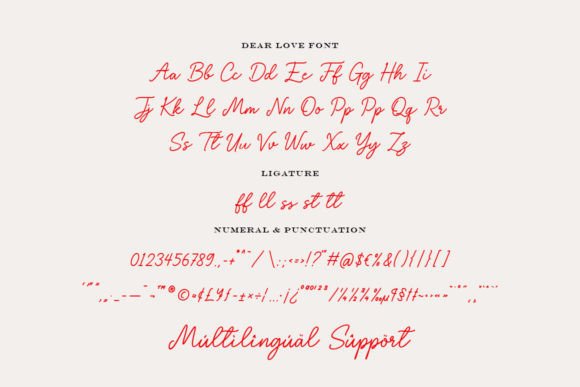 DEAR LOVE FONT
Aa Bb Cc Dd Ee Ff Gg Hh Ii
Jj Kk Ll Mm Nn Oo Pp Pp Qq Rr
Ss Tt Uu Vv Ww Xx Yy Zz
LIGATURE
ff ll ss st tt
NUMERAL & PUNCTUATION
0123456789.,-+*^~/\:;<=>!?'"#@$€%&(){|}[]
Múltilîngúäl Sûppört